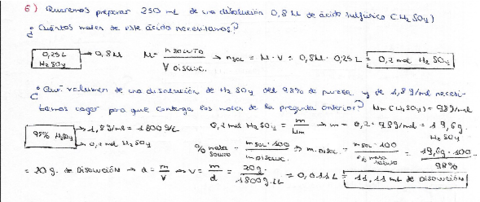 5) Queremos preparar 250 ml de una disolución 0,8 M de ácido sulfúrico (H₂SO₄)
¿Cuántos moles de este ácido necesitamos?
0,25 L H₂SO₄ → 0,8 M M = n soluto / V disoluc. → n sol = M · V = 0,8 M · 0,25 L = 0,2 mol H₂SO₄
¿Qué volumen de una disolución de H₂SO₄ del 98% de pureza y de 1,8 g/ml necesi-
tamos coger para que contenga los moles de la pregunta anterior? Mm (H₂SO₄) = 98 g/mol
98% H₂SO₄ → 1,8 g/ml = 1800 g/L → 0,2 mol H₂SO₄ 0,2 mol H₂SO₄ = m / Mm → m = 0,2 · 98 g/mol = 19,6 g H₂SO₄
% masa soluto = m sol · 100 / m disoluc. → m disoc = m sol · 100 / % masa soluto = 19,6 g · 100 / 98%
= 20 g. de Disolución → d = m / V → V = m / d = 20 g / 1800 g/L = 0,011 L = 11,11 ml de disolución